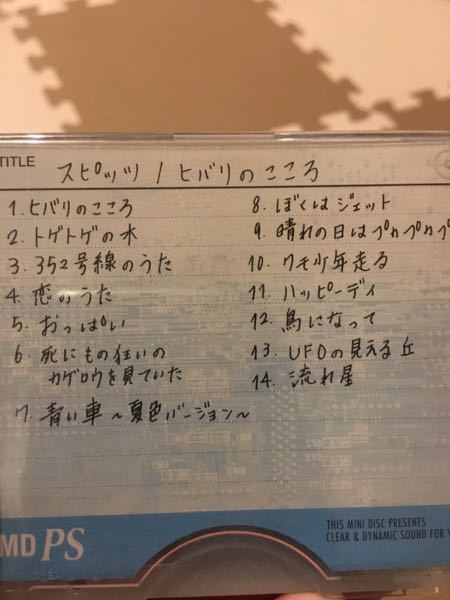 TITLE
スピッツ / ヒバリのこころ
1. ヒバリのこころ
2. トゲトゲの木
3. 352号線のうた
4. 恋のうた
5. おっぱい
6. 死にもの狂いの
カゲロウを見ていた
7. 青い車～夏色バージョン～
8. ぼくはジェット
9. 晴れの日はプカプカプ
10. クモ少年走る
11. ハッピーデイ
12. 鳥になって
13. UFOの見える丘
14. 流れ星
MD PS
THIS MINI DISC PRESENTS
CLEAR & DYNAMIC SOUND FOR